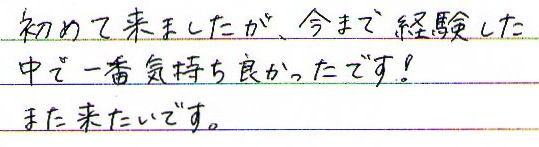 初めて来ましたが、今まで経験した
中で一番気持ち良かったです!
また来たいです。